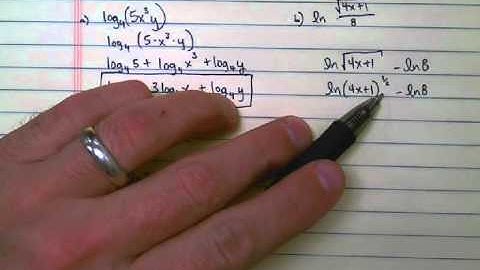 a) log₄(5x³y)
log₄(5·x³·y)
log₄5 + log₄x³ + log₄y
3log₄x + log₄y
b) ln √4x+1 / 8
ln√4x+1 - ln8
ln(4x+1)^½ - ln8